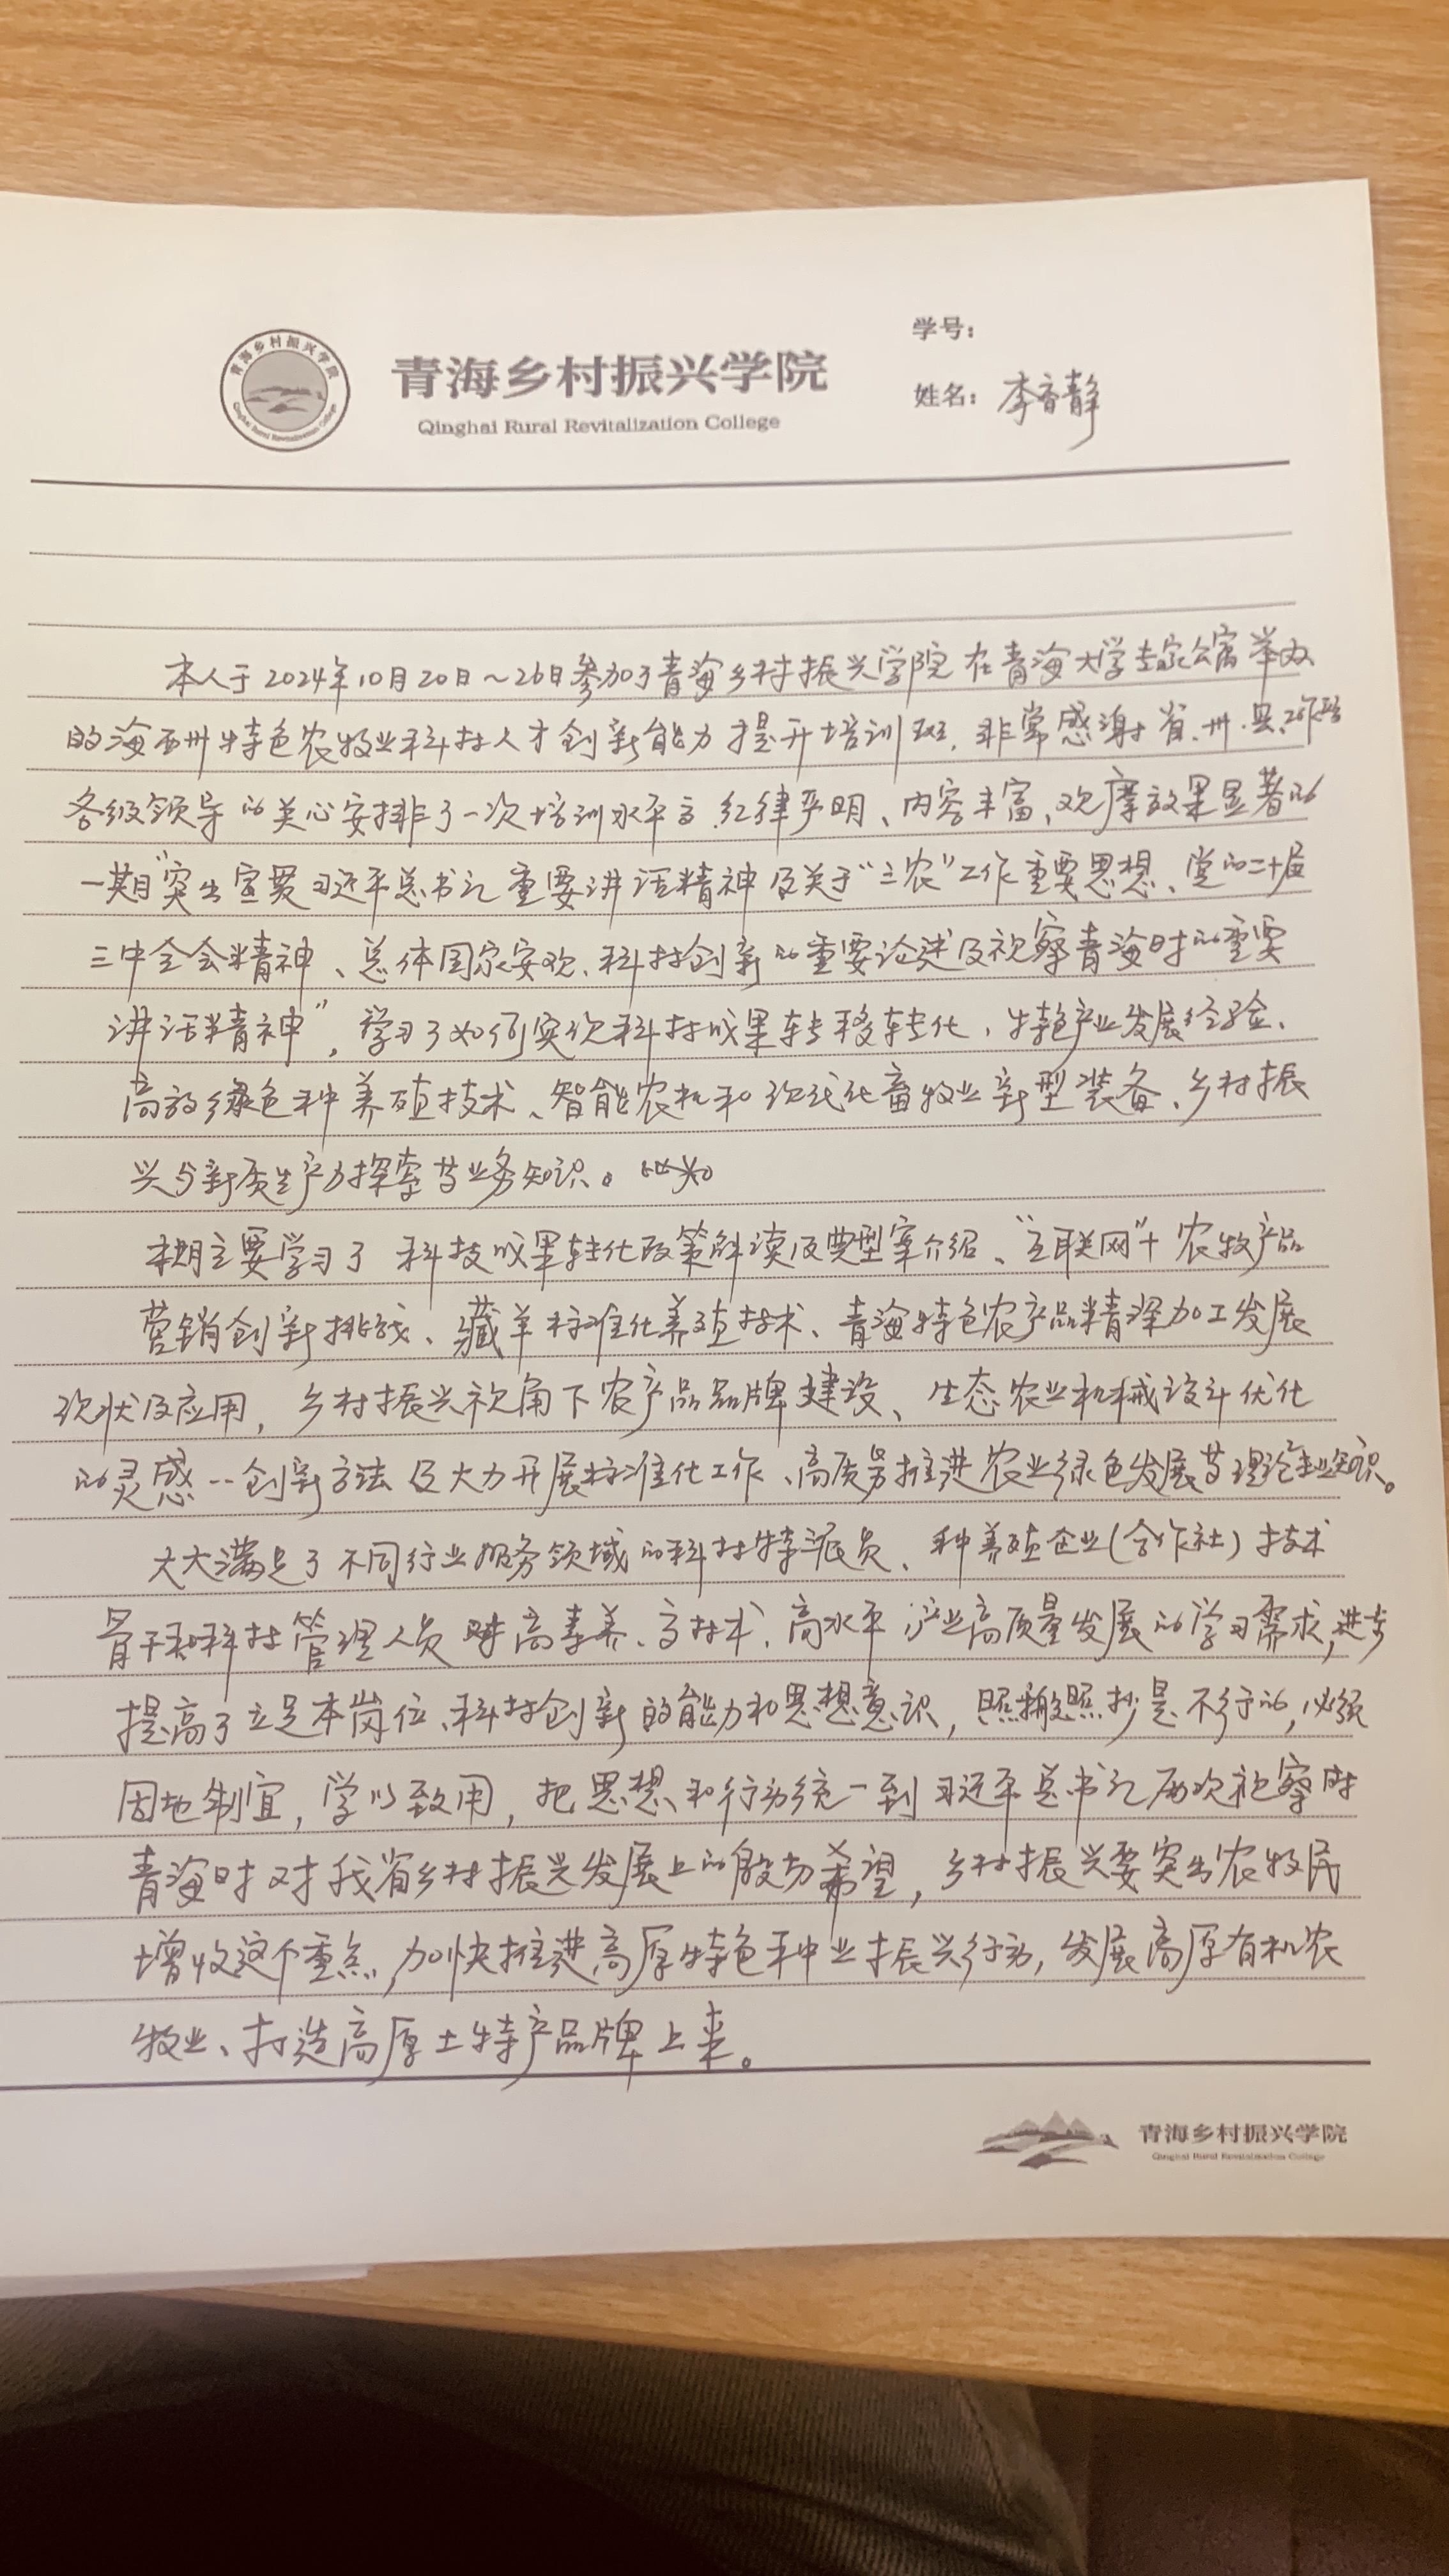 青海乡村振兴学院
Qinghai Rural Revitalization College
青海乡村振兴学院
Qinghai Rural Revitalization College
学号:
姓名: 李香静
本人于2024年10月20日~26日参加了青海乡村振兴学院在青海大学专家公寓举办
的海西州特色农牧业科技人才创新能力提升培训班,非常感谢省、州、县、工作站
各级领导的关心安排了一次培训水平高、纪律严明、内容丰富、观摩效果显著的
一期“突出宣贯习近平总书记重要讲话精神及关于“三农”工作重要思想、党的二十届
三中全会精神、总体国家安观、科技创新的重要论述及视察青海时的重要
讲话精神”,学习了如何实次科技成果转移转化、特色产业发展经验、
高效绿色种养殖技术、智能农机和现代化畜牧业新型装备、乡村振
兴与新质生产力探索等业务知识。
本期主要学习了科技成果转化政策解读及典型案介绍、“互联网”+农牧产品
营销创新挑战、藏羊标准化养殖技术、青海特色农产品精深加工发展
现状及应用,乡村振兴视角下农产品品牌建设、生态农业机械设计优化
的灵感--创新方法及大力开展标准化工作、高质量推进农业绿色发展等理论专业知识。
大大满足了不同行业服务领域的科技特派员、种养殖企业(合作社)技术
骨干和科技管理人员对高素养、高技术、高水平产业高质量发展的学习需求,进步
提高了立足本岗位、科技创新的能力和思想意识,照搬照抄是不行的,必须
因地制宜,学以致用,把思想和行动统一到习近平总书记历次视察时
青海时对我省乡村振兴发展上的殷切希望,乡村振兴要突出农牧民
增收这个重点,加快推进高原特色种业振兴行动,发展高原有机农
牧业、打造高原土特产品牌上来。
青海乡村振兴学院
Qinghai Rural Revitalization College